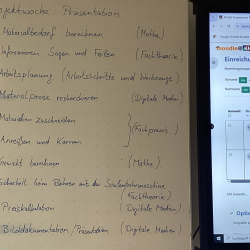 Projektwoche Präsentation
Materialbedarf berechnen (Mathe)
Informieren Sägen und Feilen (Fachtheorie)
Arbeitsplanung (Arbeitsschritte und Werkzeuge)
Materialpreise recherchieren (Digitale Medien)
Materialien zuschneiden
(Fachpraxis)
Anreißen und Körnen
Gewicht berechnen (Mathe)
Sicherheit beim Bohren mit der Säulenbohrmaschine
(Fachtheorie)
Preiskalkulation (Digitale Medien)
Bilddokumentation / Präsentation (Digitale Medien)
moodle
Einreichu
Optio